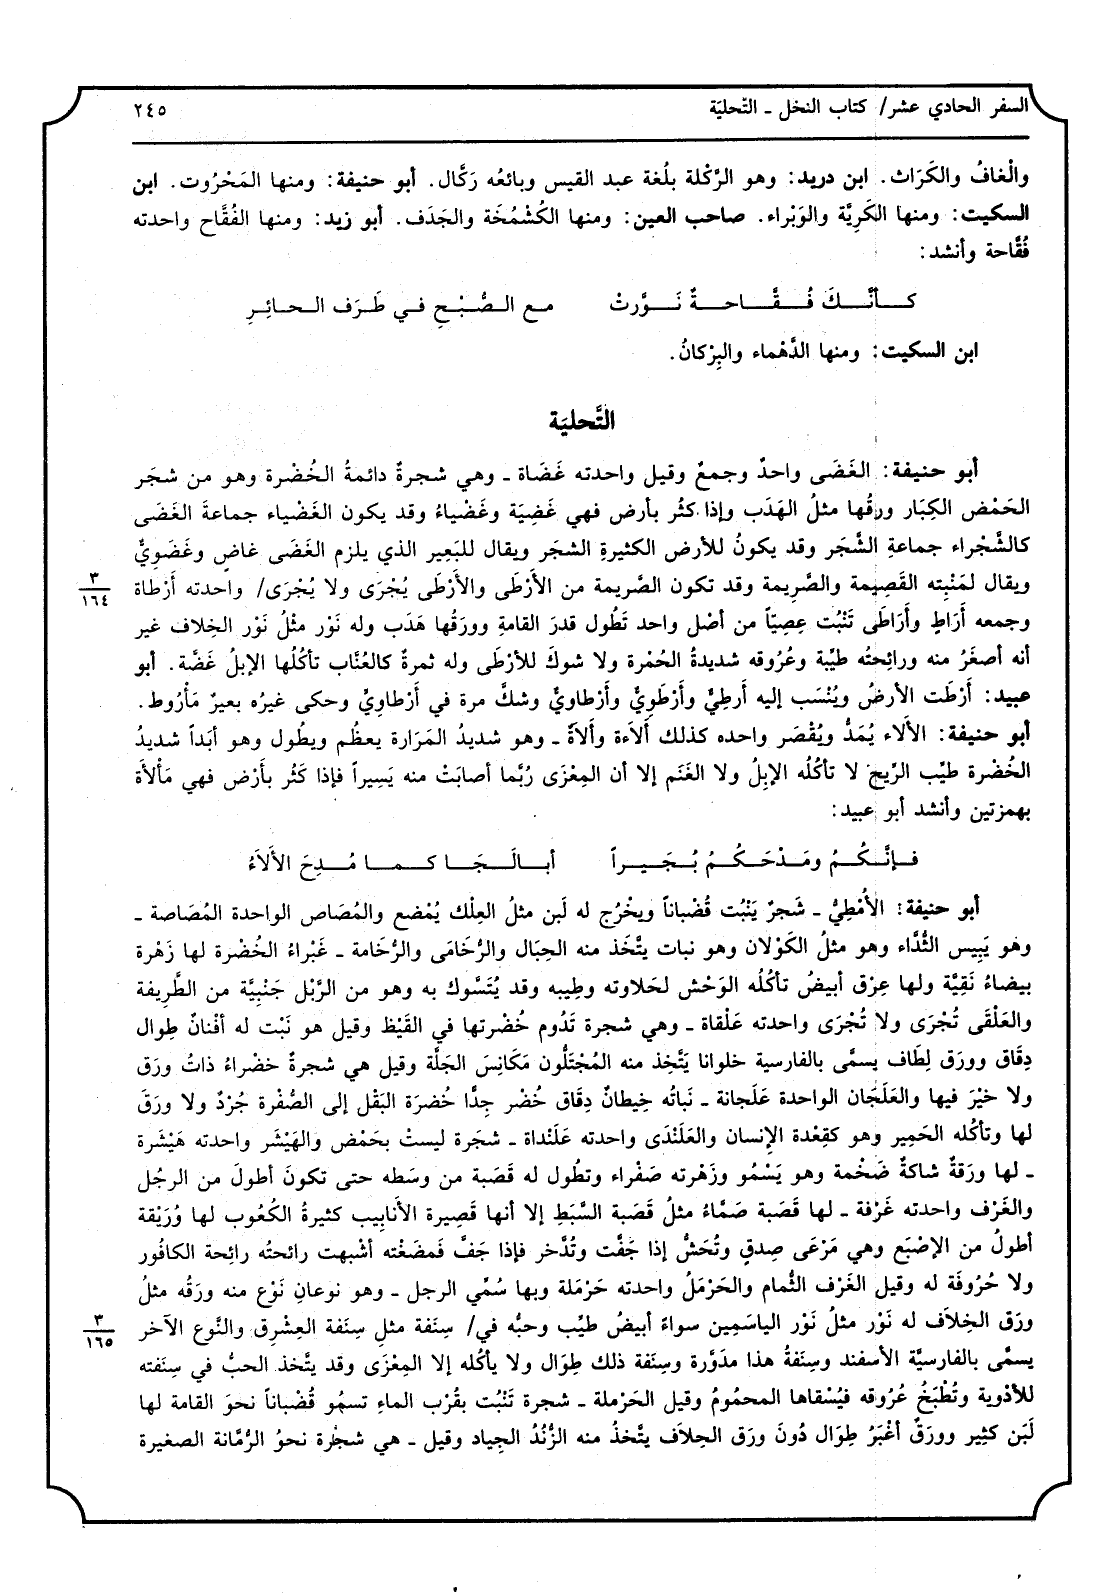 السفر الحادي عشر/ كتاب النخل ـ التّحليَة
٢٤٥
والْغافُ والكَرَاث. ابن دريد: وهو الرَّكْلة بلُغة عبد القيس وبائعُه رَكَّال. أبو حنيفة: ومنها المَحْرُوت. ابن
السكيت: ومنها الكَرِيَّة والوَبْراء. صاحب العين: ومنها الكُشْمُخَة والجَدَف. أبو زيد: ومنها الفُقَّاح واحدته
فُقَّاحة وأنشد:
كـأنَّـكَ فُـقَّـاحـةٌ نَـوَّرتْ مـع الـصُّـبْـحِ فـي طَـرَف الـحـائـرِ
ابن السكيت: ومنها الدَّهْماء والبِرْكانُ.
التَّحليَة
أبو حنيفة: الغَضَى واحدٌ وجمعٌ وقيل واحدته غَضَاة ـ وهي شجرةٌ دائمةُ الخُضْرة وهو من شجَر
الحَمْض الكِبَار ورقُها مثلُ الهَدَب وإذا كثُر بأرض فهي غَضِيَة وغَضْياءُ وقد يكون الغَضْياء جماعةَ الغَضَى
كالشَّجْراء جماعةِ الشَّجَر وقد يكونُ للأرض الكثيرةِ الشجَر ويقال للبَعِير الذي يلزم الغَضَى غاضٍ وغَضَوِيٌّ
ويقال لمَنْبِته القَصِيمة والصَّرِيمة وقد تكون الصَّريمة من الأَرْطَى والأَرْطَى يُجْرَى ولا يُجْرَى/ واحدته أَرْطاة
٣
١٦٤
وجمعه أَرَاطٍ وأَرَاطَى تَنْبُت عِصِيّاً من أصْل واحد تَطُول قدرَ القامةِ وورَقُها هَدَب وله نَوْر مثْلُ نَوْر الخِلاف غير
أنه أصغَرُ منه ورائحتُه طيِّبة وعُرُوقه شديدةُ الحُمْرة ولا شوكَ للأَرْطَى وله ثمرةٌ كالعُنَّاب تأكُلُها الإبلُ غَضَّة. أبو
عبيد: أَرْطَت الأرضُ ويُنْسَب إليه أَرطِيٌّ وأَرْطَوِيٌّ وأَرْطاويٌّ وشكَّ مرة في أَرْطاوِيٍّ وحكى غيرُه بعيرٌ مَأْرُوط.
أبو حنيفة: الأَلَاء يُمَدُّ ويُقْصَر واحده كذلك أَلاَءة وأَلاَةٌ ـ وهو شديدُ المَرَارة يعظُم ويطُول وهو أبَداً شديدُ
الخُضْرة طيِّب الرِّيح لا تأكُلُه الإبِلُ ولا الغَنَم إلا أن المِعْزَى رُبَّما أصابَتْ منه يَسِيراً فإذا كَثُر بأَرْض فهي مَأْلأَة
بهمزتين وأنشد أبو عبيد:
فـإنَّـكُـمُ ومَـدْحَـكُـمُ بُـجَـيـراً أبـا لَـجَـا كـمـا مُـدِحَ الأَلاَءُ
أبو حنيفة: الأُمْطِيُّ ـ شَجرٌ يَنْبُت قُضْباناً ويخْرُج له لَبن مثلُ العِلْك يُمْضع والمُصَاص الواحدة المُصَاصة ـ
وهو يَبِيس الثُّدَّاء وهو مثلُ الكَوْلان وهو نبات يتَّخَذ منه الحِبَال والرُّخَامَى والرُّخَامة ـ غَبْراءُ الخُضْرة لها زَهْرة
بيضاءُ نَقِيَّة ولها عِرْق أبيضُ تأكُلُه الوَحْش لحَلاوته وطِيبه وقد يُتَسَّوك به وهو من الرَّبْل جَنْبِيَّة من الطَّرِيفة
والعَلْقَى تُجْرَى ولا تُجْرَى واحدته عَلْقاة ـ وهي شجرة تَدُوم خُضْرتها في القَيْظ وقيل هو نَبْت له أفْنانٌ طِوال
دِقَاق وورَق لِطَاف يسمَّى بالفارسية خلوانا يَتَّخِذ منه المُجْتَلُّون مَكَانِسَ الجَلَّة وقيل هي شجرةٌ خضْراءُ ذاتُ ورَق
ولا خيْرَ فيها والعَلَجَان الواحدة عَلَجانة ـ نَباتُه خِيطانٌ دِقَاق خُضْر جِدًّا خُضرَة البَقْل إلى الصُّفْرة جُرْدٌ ولا ورَقَ
لها وتأكُله الحَمِير وهو كقِعْدة الإنسان والعَلَنْدَى واحدته عَلَنْداة ـ شجَرة ليستْ بحَمْض والهَيْشَر واحدته هَيْشَرة
ـ لها ورَقةٌ شاكةٌ ضَخْمة وهو يَسْمُو وزَهْرته صَفْراء وتطُول له قَصَبة من وسَطه حتى تكونَ أطولَ من الرجُل
والغَرْف واحدته غَرْفة ـ لها قَصَبة صَمَّاءُ مثلُ قَصَبة السَّبَط إلا أنها قَصِيرة الأنابِيب كثيرةُ الكُعُوب لها وُرَيْقة
أطولُ من الإصْبَع وهي مَرْعَى صِدقٍ وتُحَشُّ إذا جَفَّت وتُدَّخر فإذا جَفَّ فَمضَغْته أشْبهت رائحتُه رائحةَ الكافُور
ولا حُرُوفَة له وقيل الغَرْف الثُّمام والحَرْمَلُ واحدته حَرْمَلة وبها سُمِّي الرجل ـ وهو نوعانِ نَوْع منه ورَقُه مثلُ
ورَق الخِلَاف له نَوْر مثلُ نَوْر الياسَمِين سواءً أبيضُ طيِّب وحبُّه في/ سِنَفة مثلِ سِنَفة العِشْرِق والنَّوع الآخر
٣
١٦٥
يسمَّى بالفارسيَّة الأسفند وسِنَفةُ هذا مدَوَّرة وسِنَفة ذلك طِوَال ولا يأكله إلا المِعْزَى وقد يتَّخذ الحبُّ في سِنَفته
للأدْوية وتُطْبَخُ عُرُوقه فيُسْقاها المحمُومُ وقيل الحَرْملة ـ شجرة تَنْبُت بقُرْب الماءِ تسمُو قُضْباناً نحوَ القامة لها
لَبَن كثِير وورَقٌ أغْبَرُ طِوَال دُونَ ورَق الخِلاَف يتَّخذُ منه الزُّنُدُ الجِياد وقيل ـ هي شجَرة نحوُ الرُّمانة الصغيرة